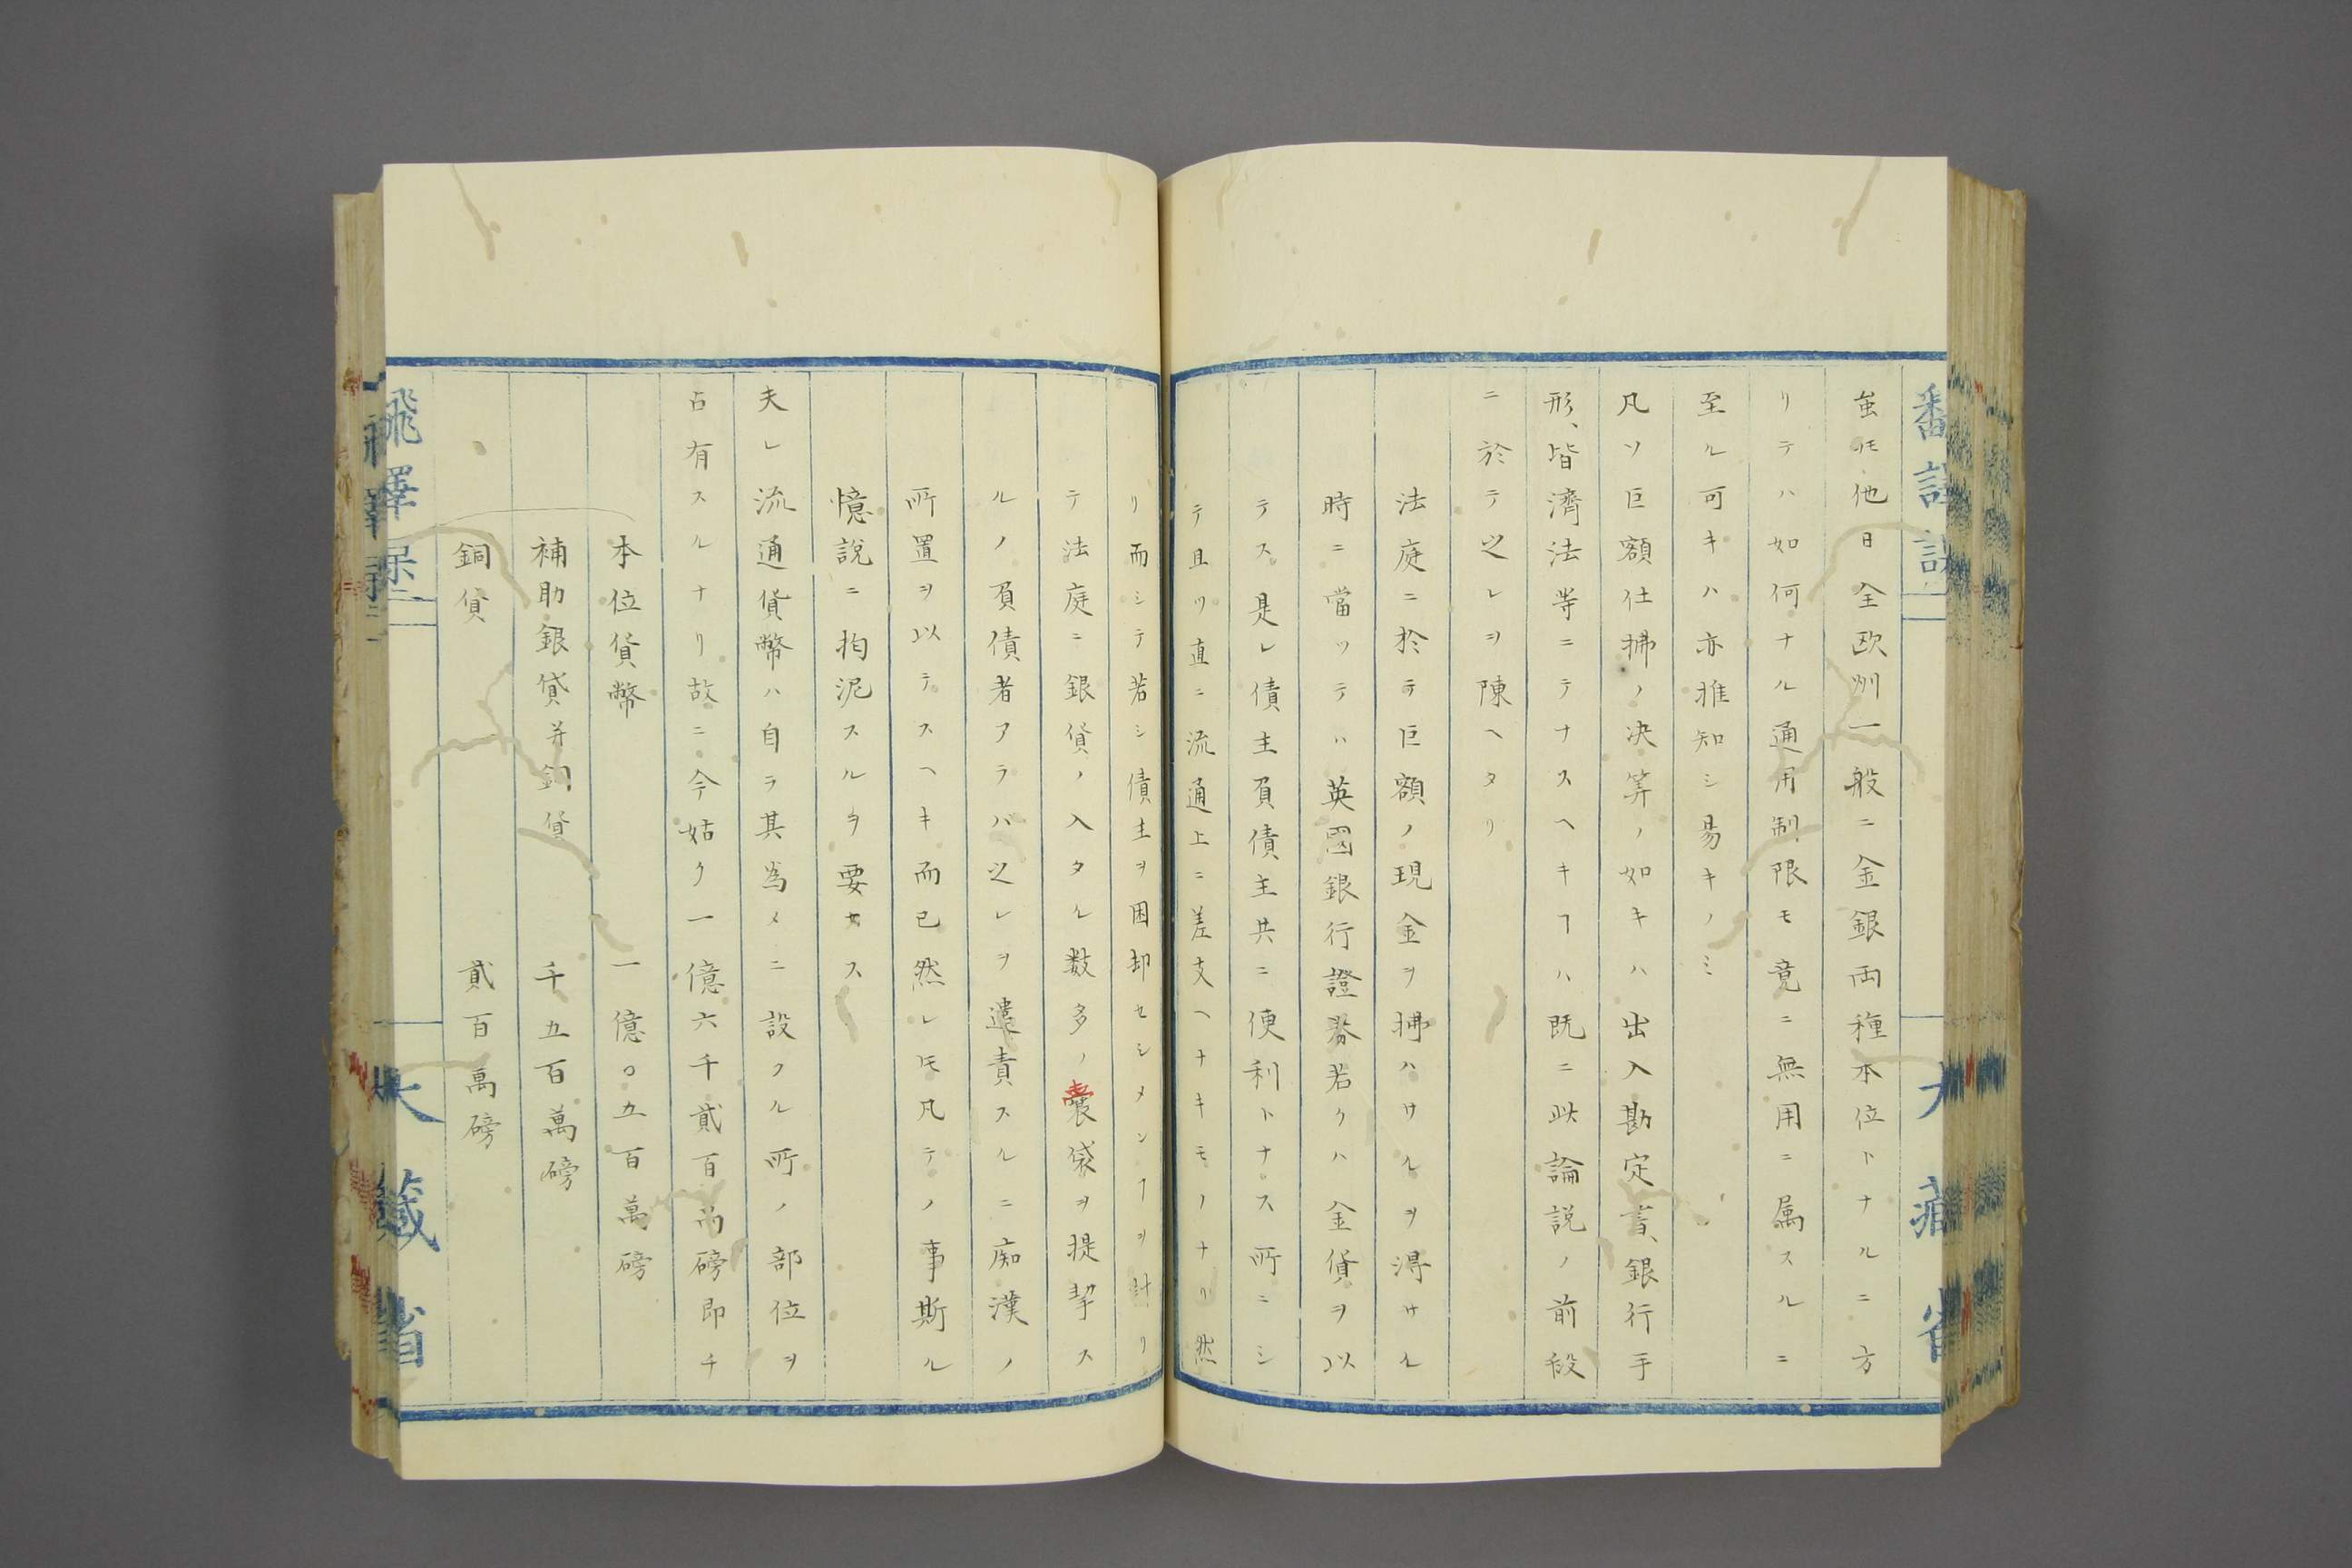 虽𪜈他日全欧州一般ニ金銀両種本位トナルニ方
リテハ如何ナル通用制限モ竟ニ無用ニ属スルニ
至ル可キハ亦推知シ易キノミ
凡ソ巨額仕拂ノ决筭ノ如キハ出入勘定書、銀行手
形、皆濟法等ニテナスヘキヿハ既ニ此論説ノ前段
ニ於テ之レヲ陳ヘタリ
法庭ニ於テ巨額ノ現金ヲ拂ハサルヲ得サル
時ニ當ツテハ英國銀行證券若クハ金貨ヲ以
テス是レ債主負債主共ニ便利トナス所ニシ
テ且ツ直ニ流通上ニ差支ヘナキモノナリ然
リ而シテ若シ債主ヲ困却セシメンヿヲ計リ
テ法庭ニ銀貨ノ入タル数多ノ囊袋ヲ提挈ス
ルノ負債者アラバ之レヲ譴責スルニ痴漢ノ
所置ヲ以テスヘキ而已然レ𪜈凡テノ事斯ル
憶說ニ拘泥スルヲ要セス
夫レ流通貨幣ハ自ラ其為メニ設クル所ノ部位ヲ
占有スルナリ故ニ今姑ク一億六千貳百萬磅即チ
本位貨幣 一億〇五百萬磅
補助銀貨并銅貨 千五百萬磅
銅貨 貳百萬磅
大蔵省